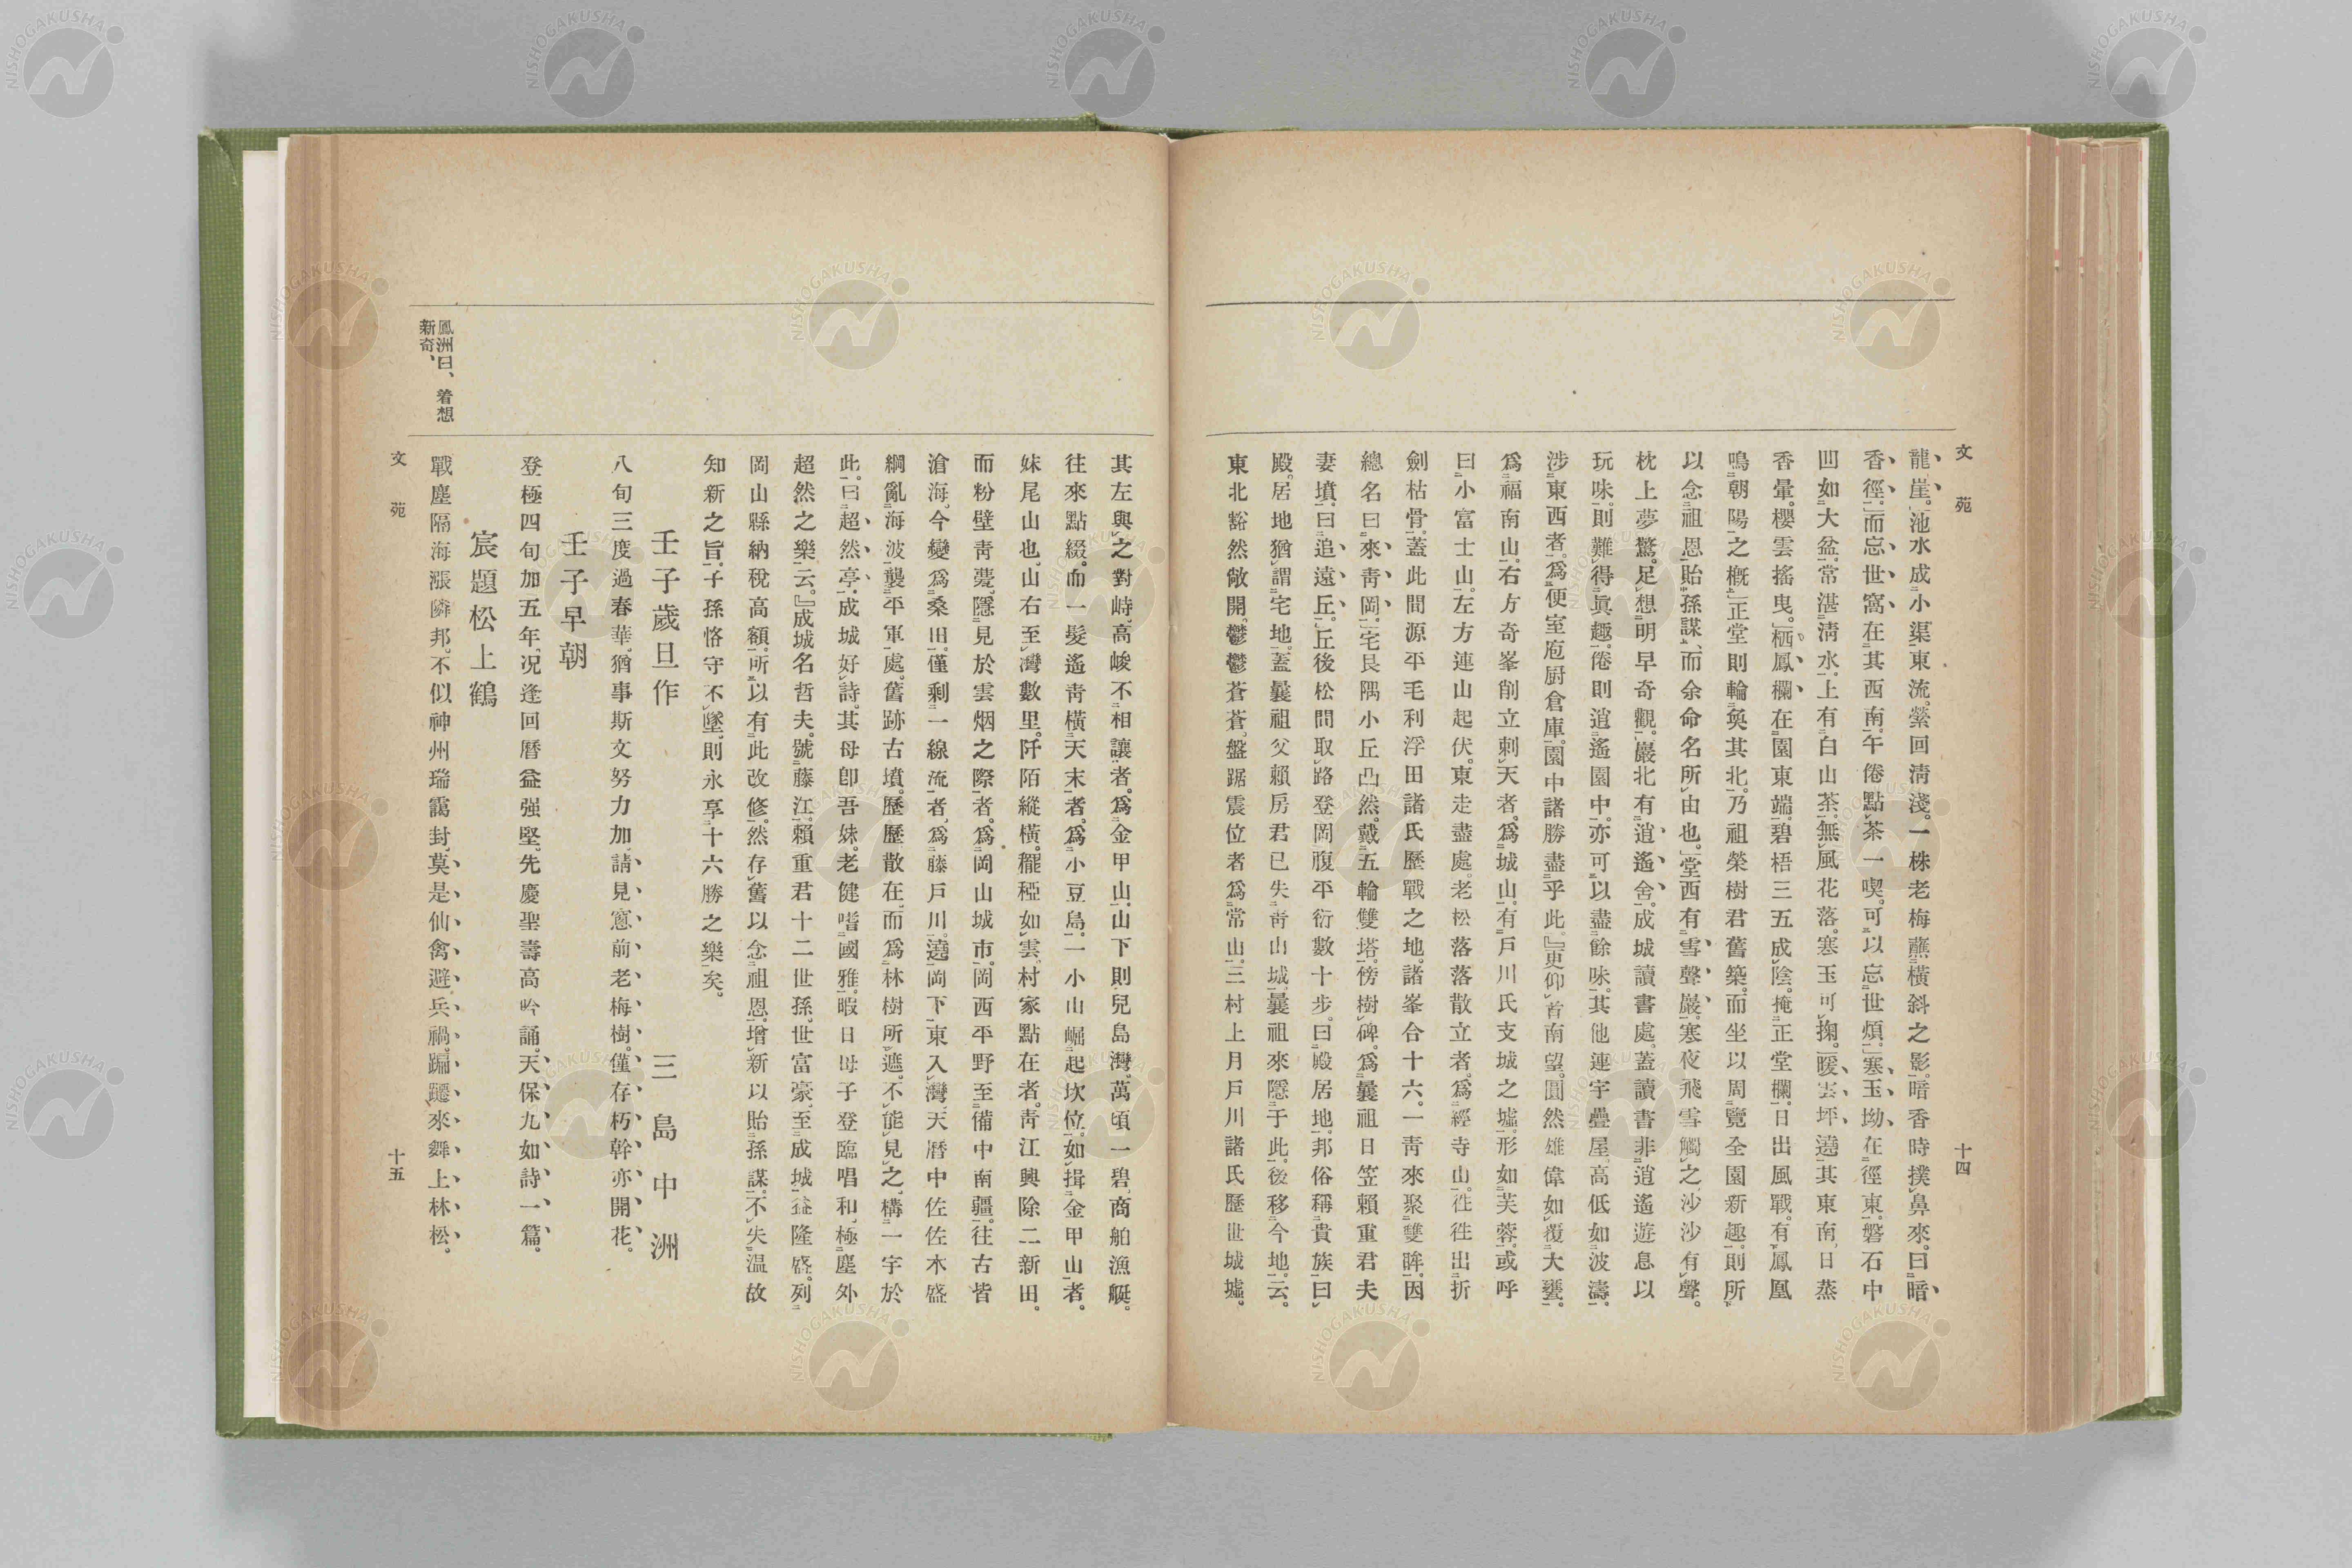 文苑
十四
龍崖。池水成小渠、東流。縈回淸淺。一株老梅蘸橫斜之影、暗香時撲鼻來。曰暗
香徑。」而忘世窩在其西南。午倦點茶一喫。可以忘世煩。」寒玉坳在徑東。磐石中
凹如大盆、常湛淸水。上有白山茶。無風花落。寒玉可掬。」暖雲坪、遶其東南、日蒸
香暈。櫻雲搖曳。」栖鳳欄、在園東端。碧梧三五成陰。掩正堂欄。日出風戰。有鳳凰
鳴朝陽之槪。」正堂則輪奐其北。乃祖榮樹君舊築。而坐以周覽全園新趣。則所
以念祖恩、貽孫謀、而余命名所由也。」堂西有雪聲巖。寒夜飛雪觸之、沙沙有聲。
枕上夢驚。足想明早奇觀。巖北有逍遙舍。成城讀書處。蓋讀書非逍遙遊息以
玩味。則難得眞趣。倦則逍遙園中。亦可以盡餘味。其他連宇疊屋。高低如波濤。
涉東西者。爲便室庖厨倉庫。園中諸勝盡乎此。』更仰首南望。圓然雄偉如覆大甕。
爲福南山。右方奇峯削立刺天者。爲城山。有戶川氏支城之墟。形如芙蓉。或呼
曰小富士山。左方連山起伏。東走盡處。老松落落散立者。爲經寺山。往往出折
劍枯骨。蓋此間源平毛利浮田諸氏歷戰之地。諸峯合十六。一靑來聚雙眸。因
總名曰來靑岡。」宅艮隅小丘凸然。戴五輪雙塔。傍樹碑。爲曩祖日笠賴重君夫
妻墳。曰追遠丘。丘後松間取路登岡腹平衍數十步。曰殿居地。邦俗稱貴族曰
殿。居地猶謂宅地。蓋曩祖父賴房君已失靑山城、曩祖來隱于此。後移今地。云。
東北豁然敞開。鬱鬱蒼蒼。盤踞震位者爲常山。三村上月戶川諸氏歷世城墟。
其左與之對峙、高峻不相讓者。爲金甲山。山下則兒島灣。萬頃一碧、商舶漁艇。
往來點綴。而一髮遙靑橫天末者。爲小豆島。一小山崛起坎位。如揖金甲山者。
妹尾山也。山右至灣數里。阡陌縱橫。䆉稏如雲。村家點在者。靑江興除二新田。
而粉壁靑甍、隱見於雲烟之際者。爲岡山城市。岡西平野至備中南疆。往古皆
滄海。今變爲桑田。僅剩一線流者、爲藤戶川。遶岡下、東入灣、天曆中佐佐木盛
綱亂海波、襲平軍處。舊跡古墳。歷歷散在、而爲林樹所遮。不能見之、構一宇於
此。曰超然亭。成城好詩。其母卽吾妹。老健嗜國雅。暇日母子登臨唱和、極塵外
超然之樂云。』成城名哲夫。號藤江。賴重君十二世孫。世富豪、至成城益隆盛。列
岡山縣納稅高額。所以有此改修。然存舊以念祖恩。增新以貽孫謀。不失溫故
知新之旨。子孫恪守不墜。則永享十六勝之樂矣。
壬子歲旦作 三島中洲
八旬三度過春華。猶事斯文努力加、請見窻前老梅樹。僅存朽幹亦開花。
壬子早朝
登極四旬加五年、况逢回曆益强堅。先慶聖壽高吟誦。天保九如詩一篇。
宸題松上鶴
戰塵隔海漲隣邦。不似神州瑞靄封、莫是仙禽避兵禍。蹁躚來舞上林松。
鳳洲曰、着想
新奇、
文苑
十五